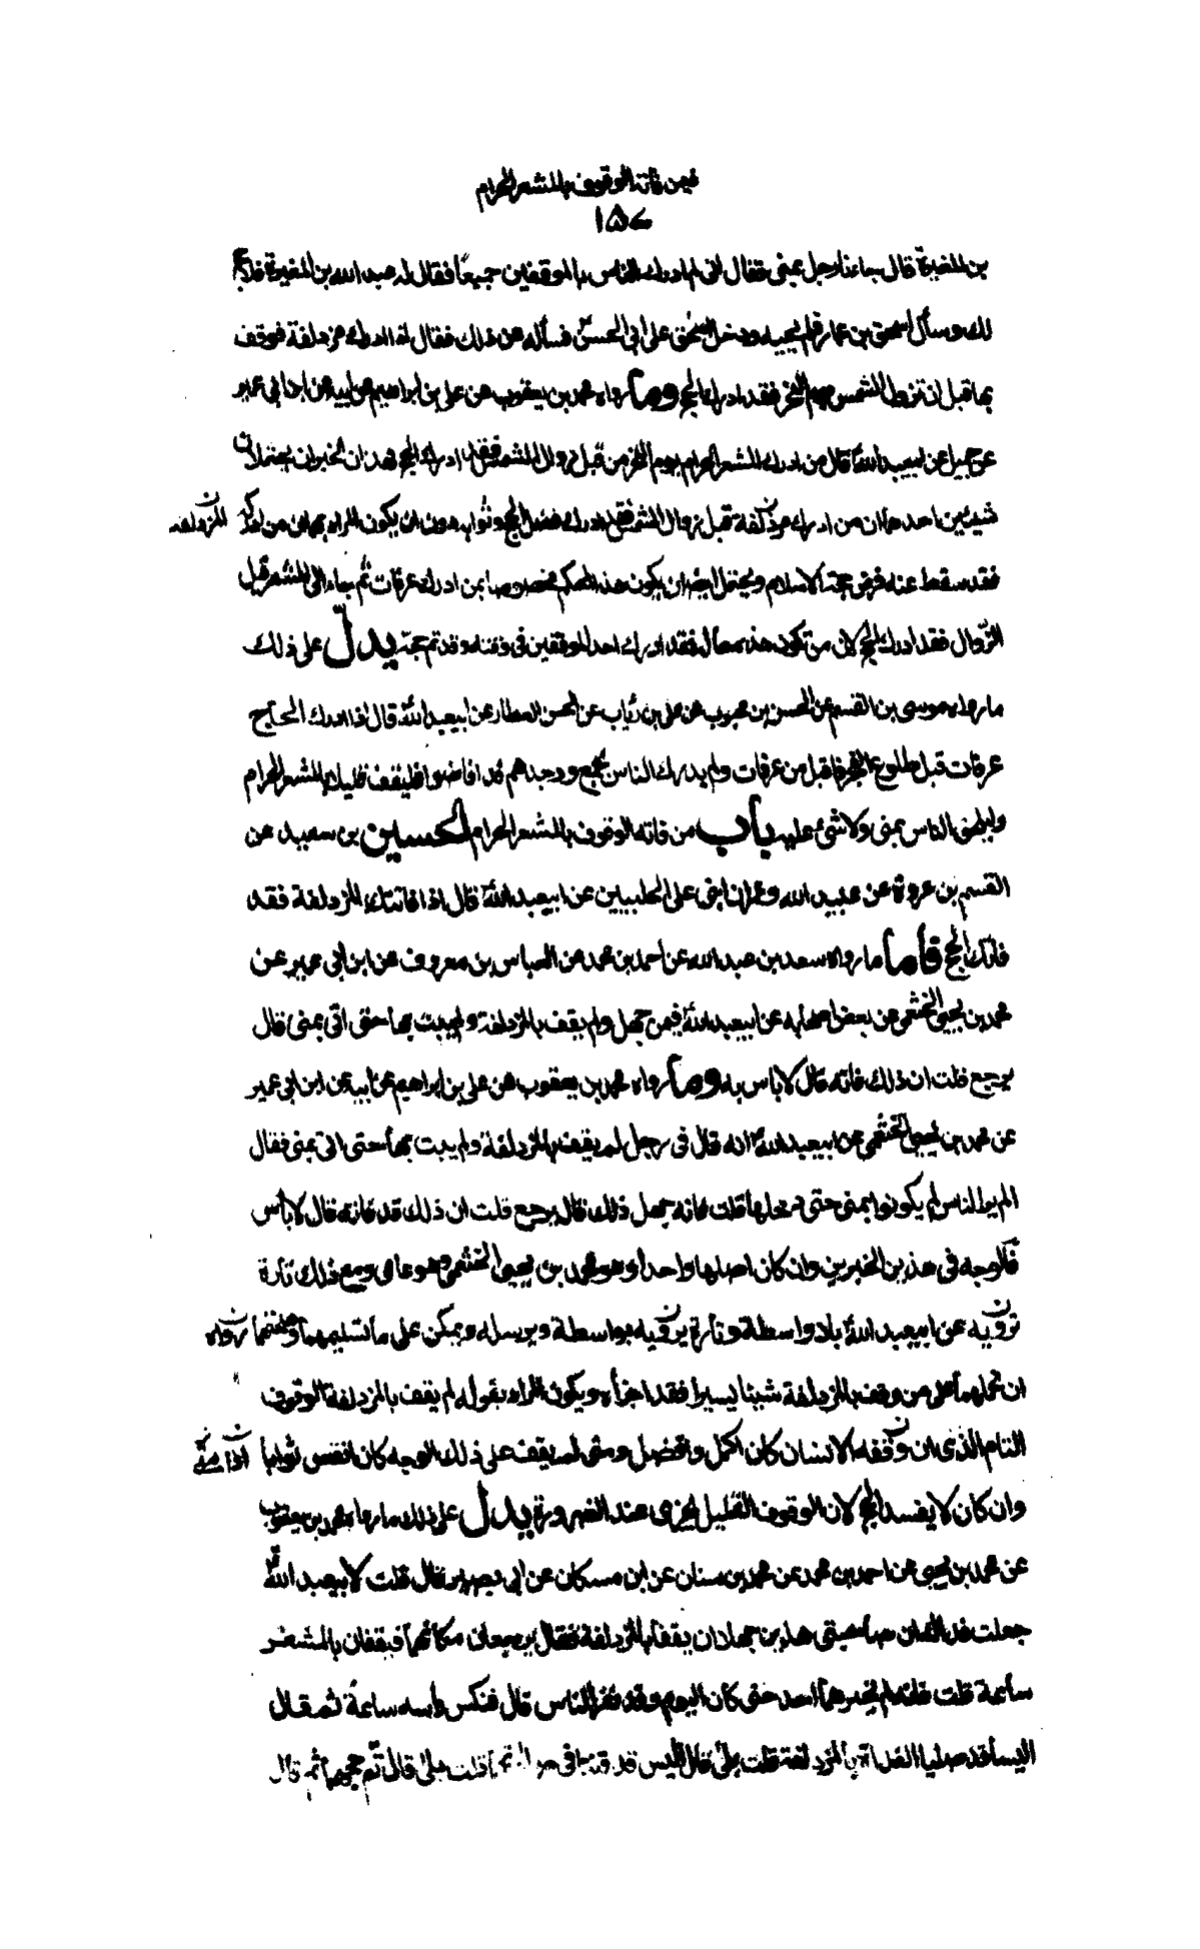 فيمن فاته الوقوف بالمشعر الحرام
١٥٧
بن المغيرة قال جاءنا رجل بمنى فقال انى لم ادرك الناس بالموقفين جميعاً فقال له عبد الله بن المغيرة فلا حج
لك وسأل اسحق بن عمار فلم يجبه ودخل اسحق على ابى الحسن فسأله عن ذلك فقال اذا ادرك مزدلفة فوقف
بها قبل ان تزول الشمس يوم النحر فقد ادرك الحج وما رواه محمد بن يعقوب عن على بن ابراهيم عن ابيه عن ابن ابى عمير
عن جميل عن ابيعبد الله قال من ادرك المشعر الحرام يوم النحر من قبل زوال الشمس فقد ادرك الحج فهذان الخبران يحتملان
شيئين احدهما ان من ادرك مزدلفة قبل زوال الشمس فقد ادرك فضل الحج وثوابه دون ان يكون المراد بهما ان من ادركه
فقد سقط عنه فرض حجة الاسلام ويحتمل ايضا ان يكون هذا الحكم مخصوصا بمن ادرك عرفات ثم جاء الى المشعر قبل
الزوال فقد ادرك الحج لان من تكون هذه حاله فقد ادرك احد الموقفين فى وقته وقد تم حجه يدل على ذلك
ما رواه موسى بن القسم عن الحسن بن محبوب عن على بن رئاب عن الحسن العطار عن ابيعبد الله قال اذا ادرك الحاج
عرفات قبل طلوع الفجر فاقبل من عرفات ولم يدرك الناس بجمع ووجدهم قد افاضوا فليقف قليلا بالمشعر الحرام
وليلحق الناس بمنى ولا شىء عليه باب من فاته الوقوف بالمشعر الحرام الحسين بن سعيد عن
القسم بن عروة عن عبيد الله وعمران ابنى على الحلبيين عن ابيعبد الله قال اذا فاتتك المزدلفة فقد
فاتك الحج فأما ما رواه سعد بن عبد الله عن احمد بن محمد عن العباس بن معروف عن ابن ابى عمير عن
محمد بن يحيى الخثعمى عن بعض اصحابه عن ابيعبد الله فيمن جهل ولم يقف بالمزدلفة ولم يبت بها حتى اتى بمنى قال
يرجع قلت ان ذلك فاته قال لا بأس به وما رواه محمد بن يعقوب عن على بن ابراهيم عن ابيه عن ابن ابى عمير
عن محمد بن يحيى الخثعمى عن ابيعبد الله انه قال فى رجل لم يقف بالمزدلفة ولم يبت بها حتى اتى بمنى فقال
الم ير الناس لم يكونوا بمنى حتى دخلها قلت فانه جهل ذلك قال يرجع قلت ان ذلك قد فاته قال لا بأس
فالوجه فى هذين الخبرين وان كان اصلهما واحدا وهو محمد بن يحيى الخثعمى وهو عامى ومع ذلك تارة
يرويه عن ابيعبد الله بلا واسطة وتارة يرويه بواسطة ويرسله ويمكن على ما تسليمهما وصحتهما
ان نحملهما على من وقف بالمزدلفة شيئا يسيرا فقد اجزأه ويكون المراد بقوله لم يقف بالمزدلفة الوقوف
التام الذى ان وقفه الانسان كان اكمل وافضل ومتى لم يقف على ذلك الوجه كان انقص ثوابا
وان كان لا يفسد الحج لان الوقوف القليل يجزى عند الضرورة يدل على ذلك ما رواه محمد بن يعقوب
عن محمد بن يحيى عن احمد بن محمد عن محمد بن سنان عن ابن مسكان عن ابى بصير قال قلت لابيعبد الله
جعلت فداك ان صاحبىّ هذين جهلا ان يقفا بالمزدلفة فقال يرجعان مكانهما فيقفان بالمشعر
ساعة قلت فانه لم يخبرهما احد حتى كان اليوم وقد نفر الناس قال فنكس رأسه ساعة ثم قال
اليسا قد صليا الغداة بالمزدلفة قلت بلى قال اليس قد قنتا فى قلت بلى قال تم حجهما ثم قال